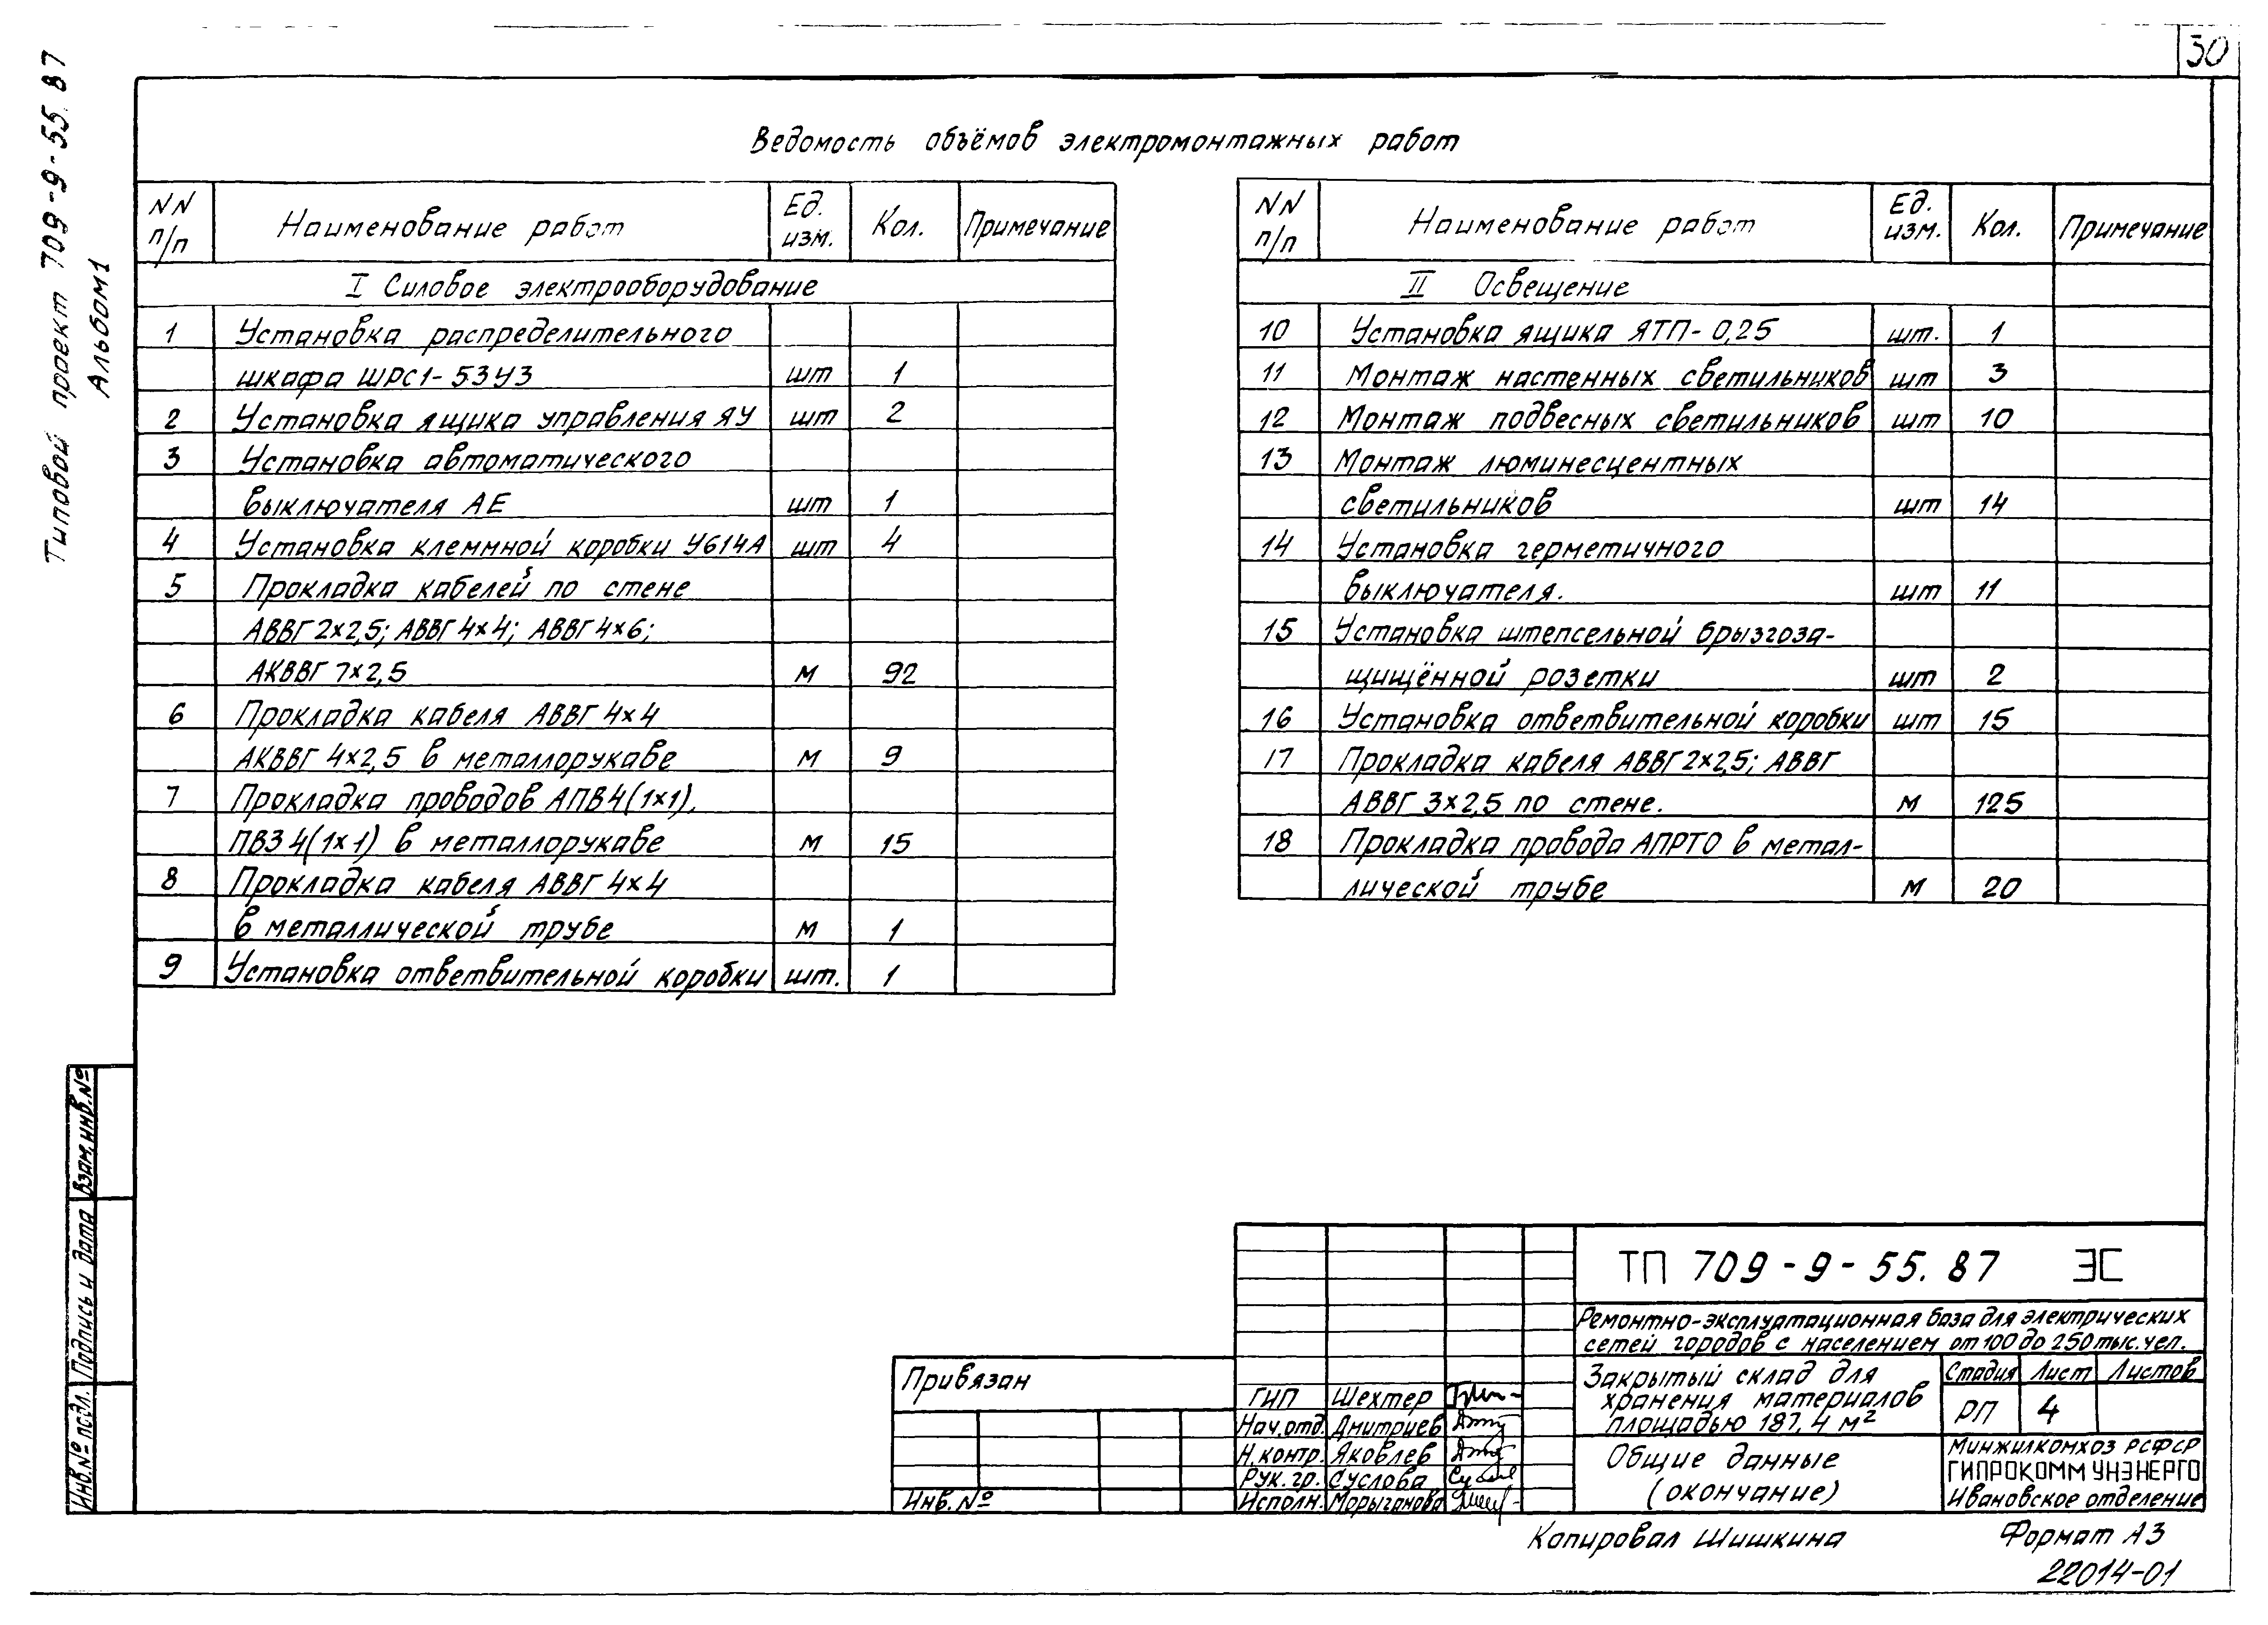 30
Типовой проект 709-9-55.87
Альбом1
Ведомость объёмов электромонтажных работ
NN п/п Наименование работ Ед. изм. Кол. Примечание
I Силовое электрооборудование
1 Установка распределительного
шкафа ШРС1-53У3 шт 1
2 Установка ящика управления ЯУ шт 2
3 Установка автоматического
выключателя АЕ шт 1
4 Установка клеммной коробки У614А шт 4
5 Прокладка кабелей по стене
АВВГ 2х2,5; АВВГ 4х4; АВВГ 4х6;
АКВВГ 7х2,5 м 92
6 Прокладка кабеля АВВГ 4х4
АКВВГ 4х2,5 в металлорукаве м 9
7 Прокладка проводов АПВ4(1х1),
ПВ3 4(1х1) в металлорукаве м 15
8 Прокладка кабеля АВВГ 4х4
в металлической трубе м 1
9 Установка ответвительной коробки шт. 1
NN п/п Наименование работ Ед. изм. Кол. Примечание
II Освещение
10 Установка ящика ЯТП-0,25 шт. 1
11 Монтаж настенных светильников шт 3
12 Монтаж подвесных светильников шт 10
13 Монтаж люминесцентных
светильников шт 14
14 Установка герметичного
выключателя. шт 11
15 Установка штепсельной брызгоза-
щищённой розетки шт 2
16 Установка ответвительной коробки шт 15
17 Прокладка кабеля АВВГ 2х2,5; АВВГ
АВВГ 3х2,5 по стене. м 125
18 Прокладка провода АПРТО в метал-
лической трубе м 20
Взам.инв.№
Подпись и дата
Инв.№ подл.
Привязан
Инв.№
ГИП Шехтер
Нач.отд. Дмитриев
Н.контр. Яковлев
Рук.гр. Суслова
Исполн. Морыганова
ТП 709-9-55.87 ЭС
Ремонтно-эксплуатационная база для электрических
сетей городов с населением от 100 до 250 тыс. чел.
Закрытый склад для
хранения материалов
площадью 187,4 м²
Стадия Лист Листов
РП 4
Общие данные
(окончание)
Минжилкомхоз РСФСР
ГИПРОКОММУНЭНЕРГО
Ивановское отделение
Копировал Шишкина
Формат А3
22014-01